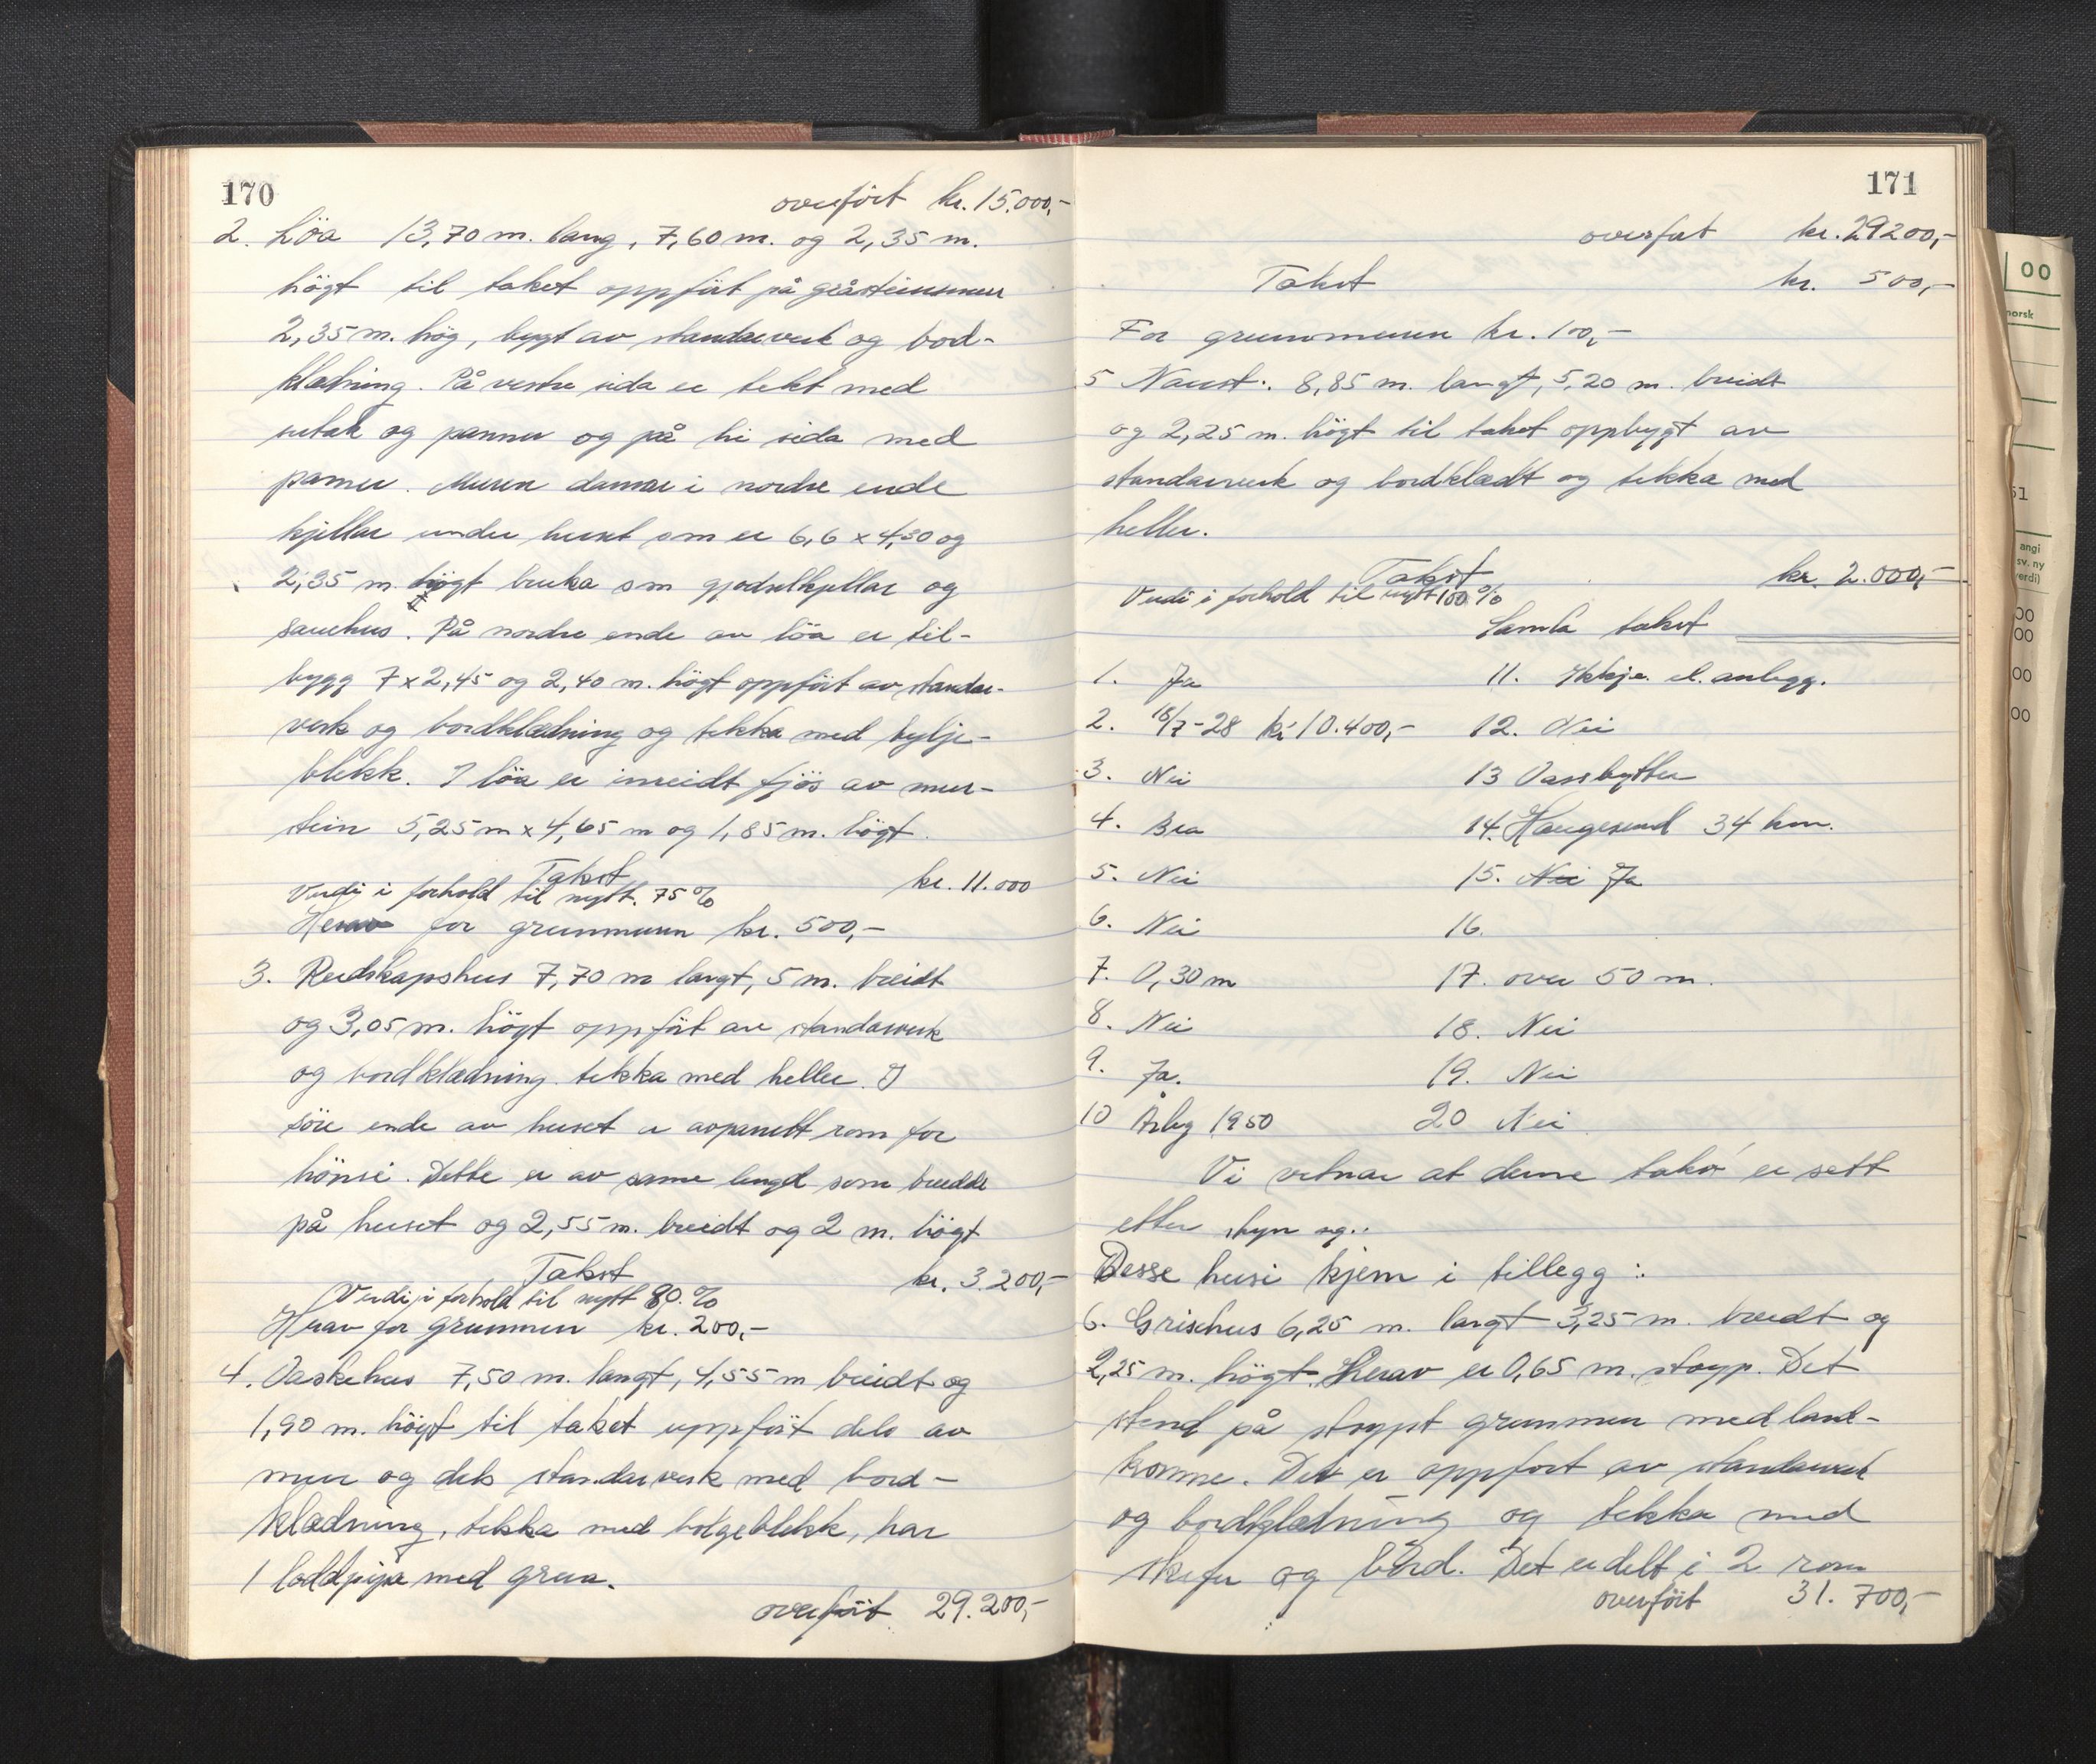 170
overført kr. 15.000,-
2. Löa 13,70 m. lang, 7,60 m. og 2,35 m.
högt til taket oppfört på gråsteinsmur
2,35 m. hög, bygt av standarverk og bord-
klædning. På vestre sida er tekt med
sutak og panner og på hi sida med
panner. Muren dannar i nordre ende
kjellar under huset som er 6,6 x 4,30 og
2,35 m. högt bruka som gjødselkjellar og
sauehus. På nordre ende av löa er til-
bygg 7 x 2,45 og 2,40 m. högt oppfört av standar-
verk og bordklædning og tekka med bylje-
blekk. I löa er innreidt fjös av mur-
stein 5,25 m x 4,65 m og 1,85 m. högt.
Takst kr. 11.000
Verdi i forhold til nytt. 75 %
Herav for grunnmuren kr. 500,-
3. Reidskapshus 7,70 m langt, 5 m. breidt
og 3,05 m. högt oppfört av standarverk
og bordklædning tekka med heller. I
söre ende av huset er avpanelt rom for
hönsi. Dette er av same lengd som breidde
på huset og 2,55 m. breidt og 2 m. högt
Takst kr. 3.200,-
Verdi i forhold til nytt 80. %
Herav for grunnmur kr. 200,-
4. Vaskehus 7,50 m. langt, 4,55 m breidt og
1,90 m. högt til taket uppfört dels av
mur og dels standarverk med bord-
klædning, tekka med bolgeblekk, har
1 loddpipa med grua.
overfört 29.200,-
171
overført kr. 29200,-
Takst kr. 500,-
For grunnmuren kr. 100,-
5 Naust: 8,85 m. langt, 5,20 m. breidt
og 2,25 m. högt til taket oppbygt av
standarverk og bordklædt og tekka med
heller.
Takst kr. 2.000,-
Verdi i forhold til nytt 100 %
Samla takst
1. Ja 11. Ikkje el. anlegg.
2. 18/7-28 kr 10.400,- 12. Nei
3. Nei 13 Vassbytter
4. Bra 14. Haugesund 34 km.
5. Nei 15. Nei Ja
6. Nei 16.
7. 0,30 m 17. over 50 m.
8. Nei 18. Nei
9. Ja. 19. Nei
10 Årleg 1950 20 Nei
Vi vitnar at denne takst er sett
etter skyn og..
Desse husi kjem i tillegg:
6. Grisehus 6,25 m. langt 3,25 m. breidt og
2,25 m. högt. Herav er 0,65 m. støyp. Det
stend på støypt grunnmur med land-
komme. Det er oppfort av standarverk
og bordklædning og tekka med
skifer og bord. Det er delt i 2 rom
overfört 31.700,-
OO
norsk
51
angi
sv. ny
verdi)
00
00
00
00